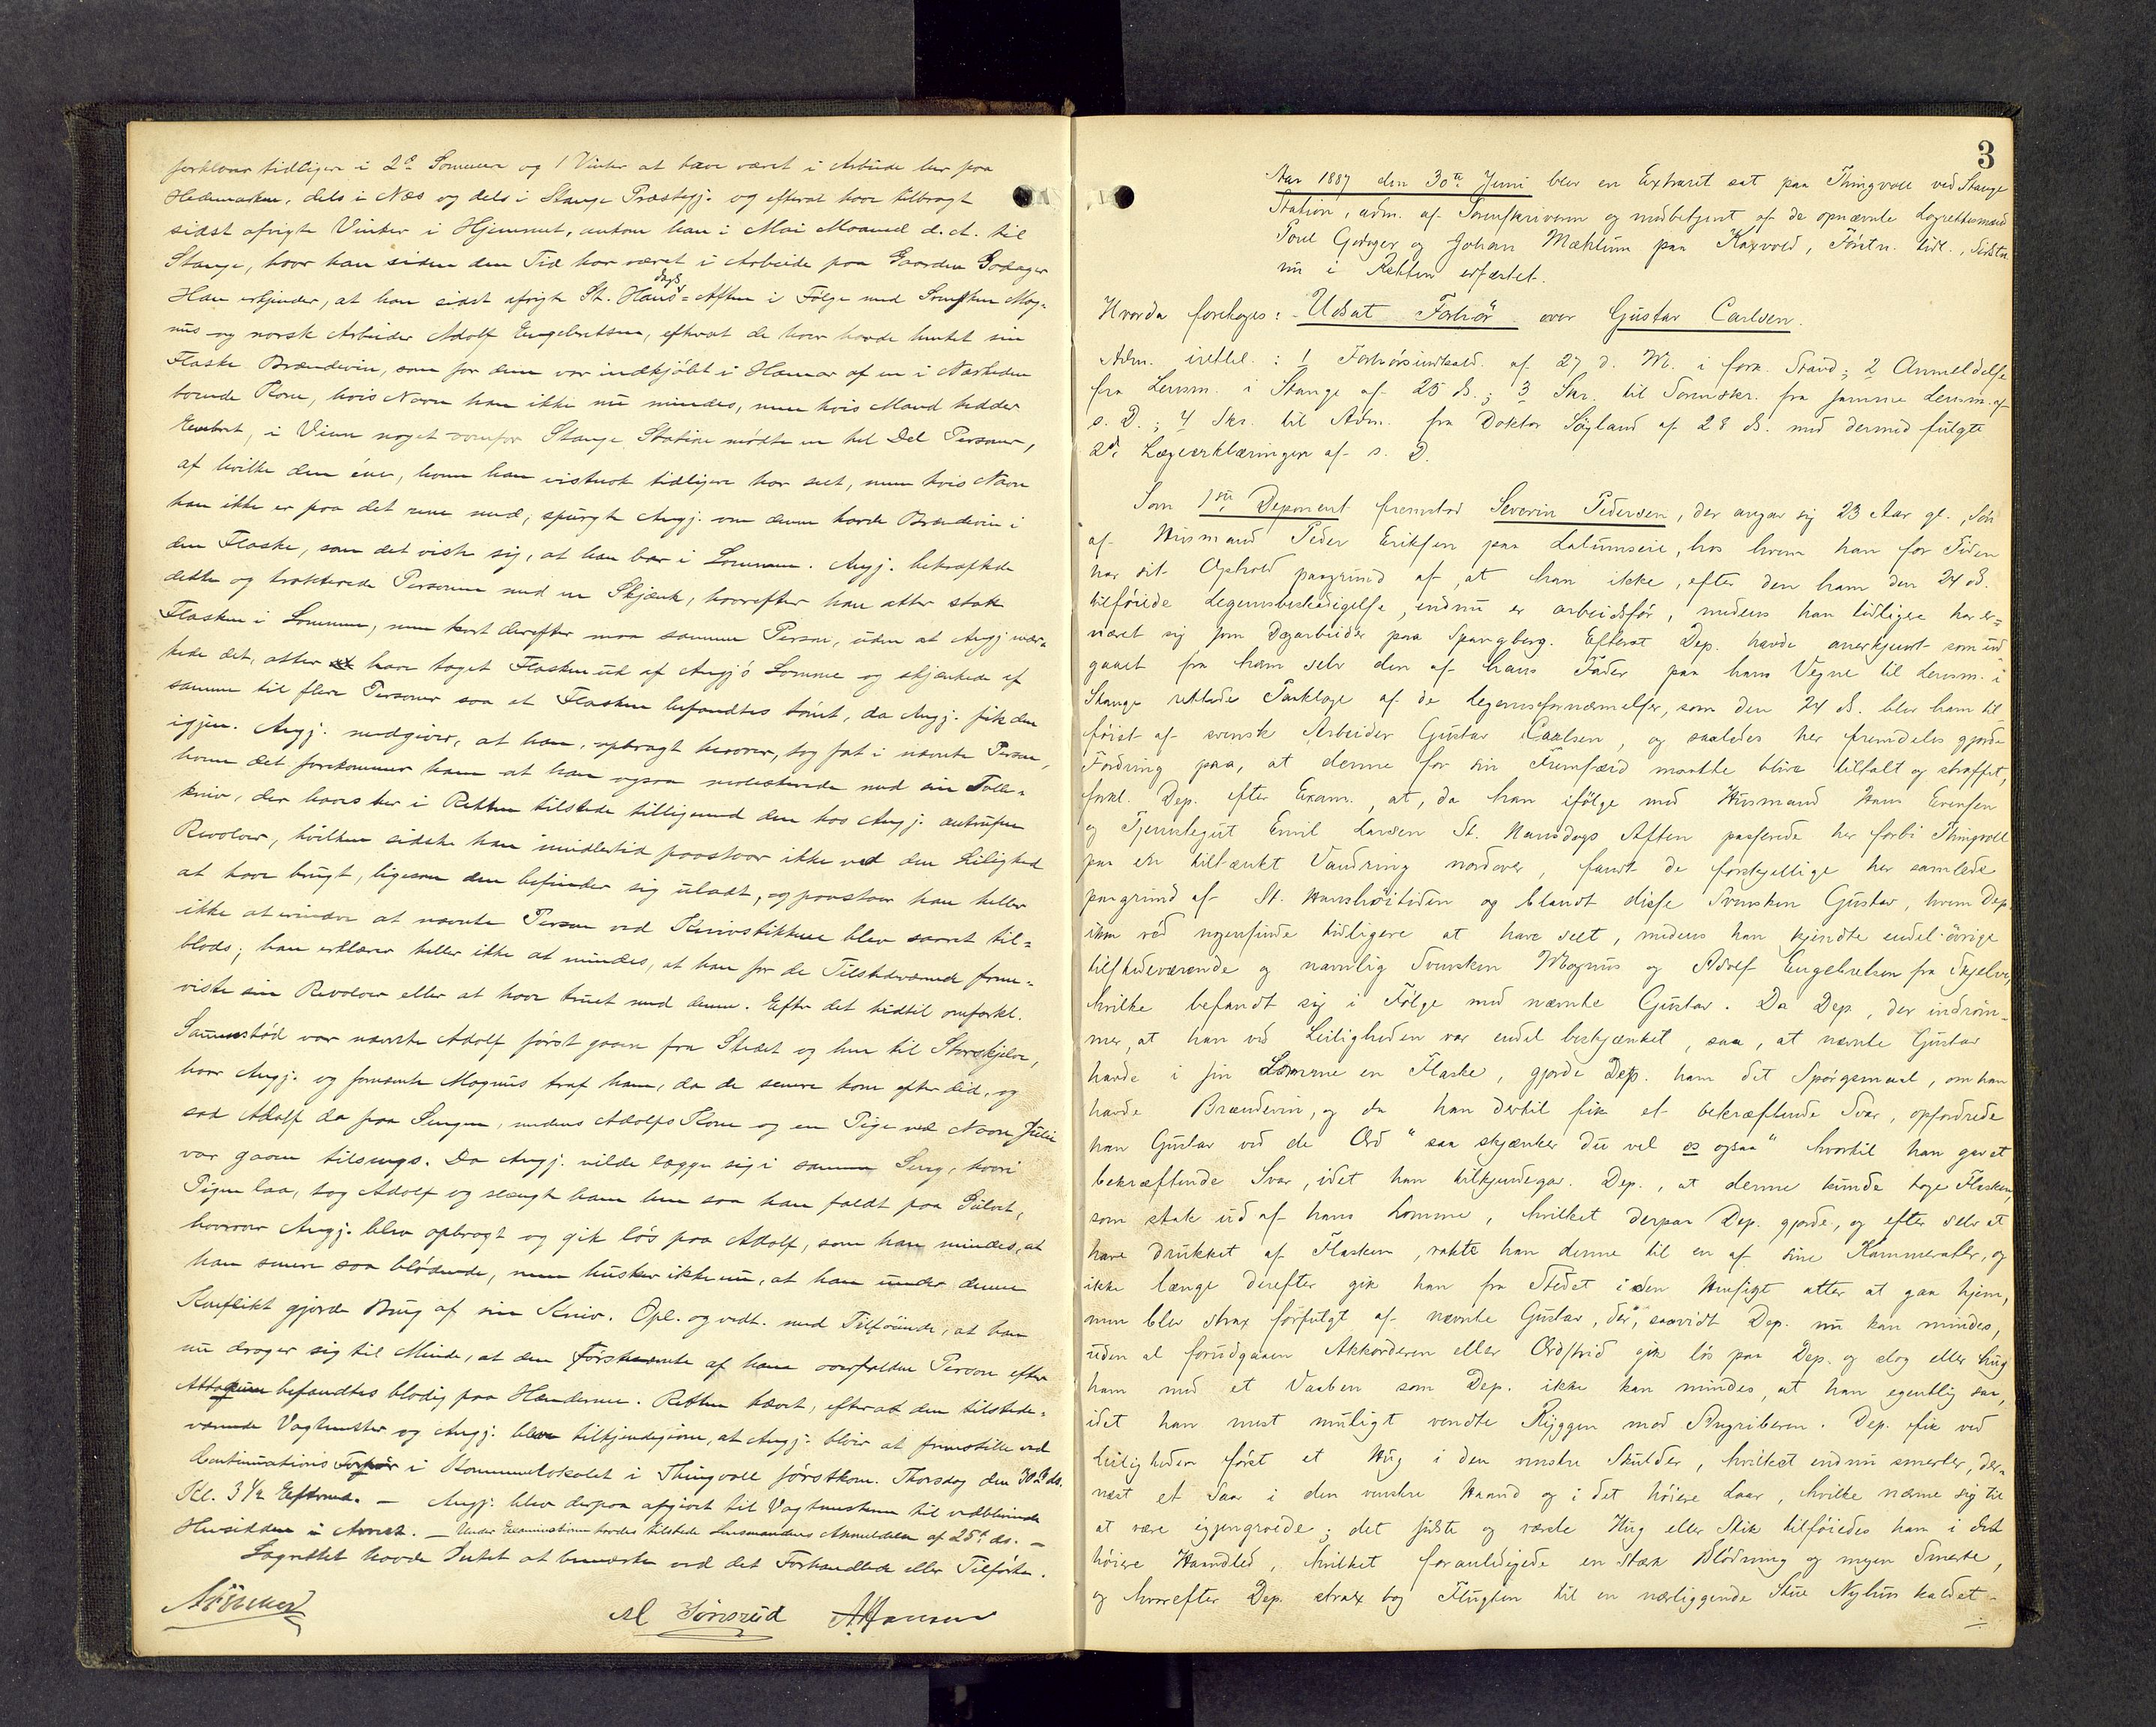 forklarer tidligere i 2de Sommere og 1 Vinter at have været i Arbeide her paa
Hedemarken, dels i Næs og dels i Stange Præstegj. og efterat have tilbragt
sidst afvigte Vinter i Hjemmet, ankom han i Mai Maaned d. A. til
Stange, hvor han siden den Tid har været i Arbeide paa Gaarden Godager
Han erkjender, at han sidst afvigte St. Hansdags-Aften i Følge med Svensken Mag-
nus og norsk Arbeider Adolf Engebretsen, efterat de hver havde hentet sin
Flaske Brændevin, som for dem var indkjøbt i Hamar af en i Nærheden
boende Kone, hvis Navn han ikke nu mindes, men hvis Mand hedder
Engebret, i Veien noget ovenfor Stange Station mødte en hel Del Personer,
af hvilke den éne, hvem han vistnok tidligere har seet, men hvis Navn
han ikke er paa det rene med, spurgte Angj. om denne havde Brændevin i
den Flaske, som det viste sig, at han bar i Lommen. Angj. bekræftede
dette og trakterede Personen med en Skjænk, hvorefter han atter stak
Flasken i Lommen, men kort derefter maa samme Person, uden at Angj. mær-
kede det, atter have taget Flasken ud af Angj's Lomme og skjænkede af
samme til flere Personer saa at Flasken befandtes tømt, da Angj. fik den
igjen. Angj. medgiver, at han, opbragt herover, tog fat i nævnte Person,
hvem det forekommer ham at han ogsaa molesterede med sin Tolle-
kniv, der haves her i Retten tilstede tilligemed den hos Angj. antrufne
Revolver, hvilken sidste han imidlertid paastaar ikke ved den Leilighed
at have brugt, ligesom den befinder sig uladt, og paastaar han heller
ikke at erindre at nævnte Person ved Knivstikkene blev saaret til-
blods; han erklærer heller ikke at mindes, at han for de Tilstedeværende frem-
viste sin Revolver eller at have truet med denne. Efter det hidtil omforkl.
Sammenstød var nævnte Adolf først gaaen fra Stedet og hen til Storskjelve,
hvor Angj. og fornævnte Magnus traf ham, da de senere kom efter did, og
sad Adolf da paa Sengen, medens Adolfs Kone og en Pige ved Navn Julie
var gaaen tilsengs. Da Angj. vilde lægge sig i samme Seng, hvori
Pigen laa, tog Adolf og slængte ham hen saa han faldt paa Gulvet,
hvorover Angj. blev opbragt og gik løs paa Adolf, som han mindes, at
han senere saa blødende, men husker ikke nu, at han under denne
Konflikt gjorde Brug af sin Kniv. Opl. og vedt. med Tilføiende, at han
nu drager sig til Minde, at den førstnævnte af ham overfaldne Person efter
Attaquen befandtes blodig paa Hænderne. Retten hævet, efterat den tilstede-
værende Vagtmester og Angj. blev tilkjendegivne, at Angj. bliver at fremstille ved
Continuations Forhør i Kommunelokalet i Thingvold førstkom. Thorsdag den 30te ds.
Kl. 3½ Efterm. — Angj. blev derpaa afgivet til Vagtmesteren til vedblivende
Hensidden i Arrest. — Under Examinationen havdes tilstede Lensmandens Anmeldelse af 25de ds. —
Lagrettet havde Intet at bemærke ved det Forhandlede eller Tilførte.
M Sørsrud A. Hansen
3
Aar 1887 den 30te Juni blev en Extraret sat paa Thingvold ved Stange
Station, adm. af Sorenskriveren og medbetjent af de opnævnte Lagrettesmænd
Poul Godager og Johan Mæhlum paa Kaxvold, Førstn. tidl., Sidstn.
nu i Retten edfæstet.
Hvorda foretoges: Udsat Forhør over Gustav Carlsen.
Adm. irettel.: 1 Forhørsindkald. af 27 d. M. i fork. Stand; 2 Anmeldelse
fra Lensm. i Stange af 25 ds.; 3 Skr. til Sorenskr. fra samme Lensm. af
s. D.; 4 Skr. til Adm. fra Doktor Søyland af 28 ds. med dermed fulgte
2de Lægeerklæringer af s. D.
Som 1ste Deponent fremstod Severin Pedersen, der angav sig 23 Aar gl., Søn
af Husmand Peder Eriksen paa Lalumseie, hos hvem han for Tiden
har sit Ophold paagrund af, at han ikke, efter den ham den 24 ds.
tilføiede Legemsbeskadigelse, endnu er arbeidsfør, medens han tidligere har er-
næret sig som Dagarbeider paa Spangberg. Efterat Dep. havde anerkjendt som ud-
gaaet fra ham selv den af hans Fader paa hans Vegne til Lensm. i
Stange rettede Paaklage af de Legemsfornærmelser, som den 24 ds. blev ham til-
føiet af svensk Arbeider Gustav Carlsen, og saaledes her fremdeles gjorde
Fordring paa, at denne for sin Fremfærd maatte blive tiltalt og straffet,
forkl. Dep. efter Exam., at, da han ifølge med Husmand Hans Evensen
og Tjenstegut Emil Larsen St. Hansdags Aften passerede her forbi Thingvold
paa en tiltænkt Vandring nordover, fandt de forskjellige her samlede
paagrund af St. Hanshøitiden og blandt disse Svensken Gustav, hvem Dep.
ikke ved nogensinde tidligere at have seet, medens han kjendte endel øvrige
tilstedeværende og navnlig Svensken Magnus og Adolf Engebretsen fra Skjelve,
hvilke befandt sig i Følge med nævnte Gustav. Da Dep., der indrøm-
mer, at han ved Leiligheden var endel beskjænket, saa, at nævnte Gustav
havde i sin Lomme en Flaske, gjorde Dep. ham det Spørgsmaal, om han
havde Brændevin, og da han dertil fik et bekræftende Svar, opfordrede
han Gustav ved de Ord "saa skjænker du vel os ogsaa" hvortil han gav et
bekræftende Svar, idet han tilkjendegav. Dep., at denne kunde tage Flasken,
som stak ud af hans Lomme, hvilket derpaa Dep. gjorde, og efter selv at
have drukket af Flasken, rakte han denne til en af sine Kammerater, og
ikke længe derefter gik han fra Stedet i den Hensigt atter at gaa hjem,
men blev strax forfulgt af nævnte Gustav, der, saavidt Dep. nu kan mindes,
uden al forudgaaen Akkorderen eller Ordstrid gik løs paa Dep. og slog eller hug
ham med et Vaaben som Dep. ikke kan mindes, at han egentlig saa,
idet han mest muligt vendte Ryggen mod Angriberen. Dep. fik ved
Leiligheden først et Hug i den venstre Skulder, hvilket endnu smerter, der-
næst et Saar i den venstre Haand og i det høiere Laar, hvilke nærme sig til
at være igjengroede; det sidste og værste Hug eller Stik tilføiedes ham i det
høiere Haandled, hvilket foranledigede en stærk Blødning og megen Smerte,
og hvorefter Dep. strax tog Flugten til en nærliggende Stue Nyhus kaldet —